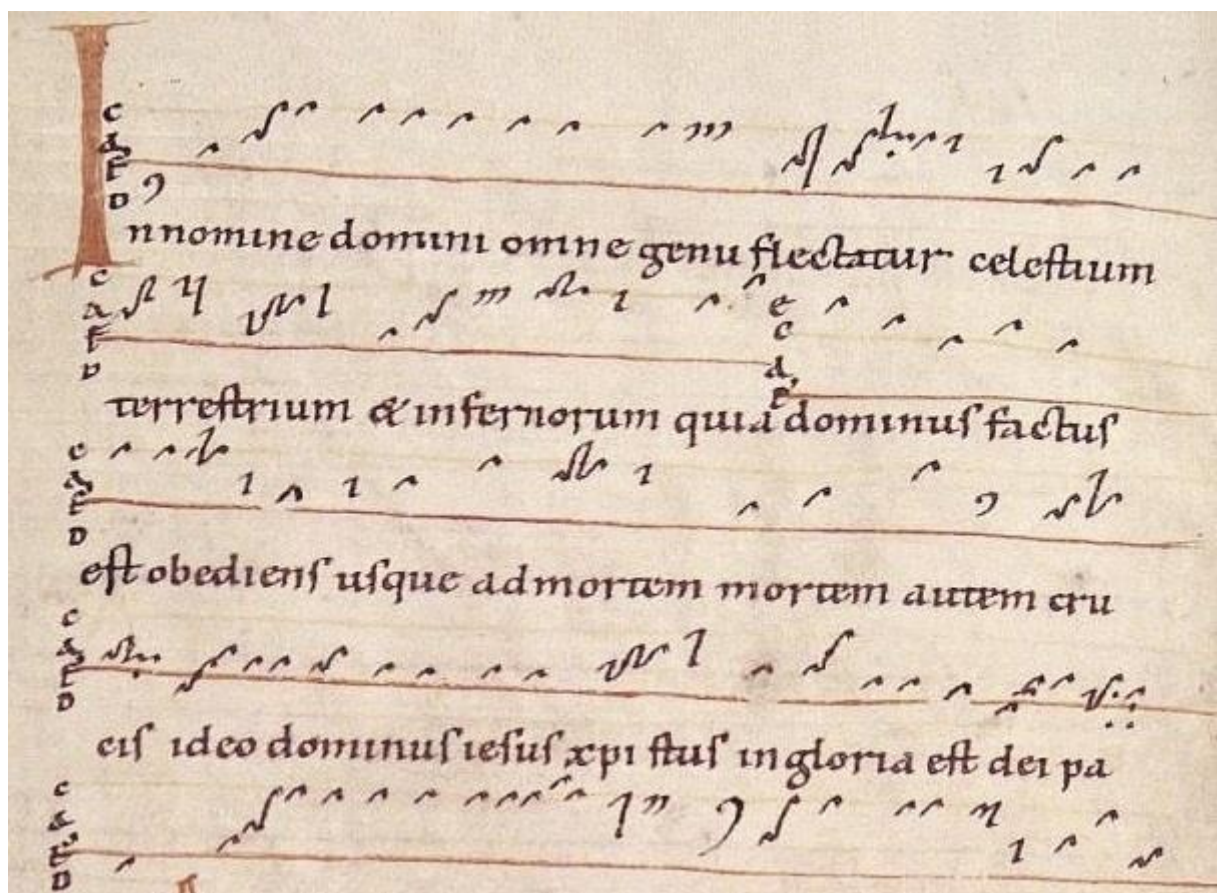 In nomine domini omne genu flectatur celestium
terrestrium & infernorum quia dominus factus
est obediens usque ad mortem mortem autem cru
cis ideo dominus iesus xpistus in gloria est dei pa